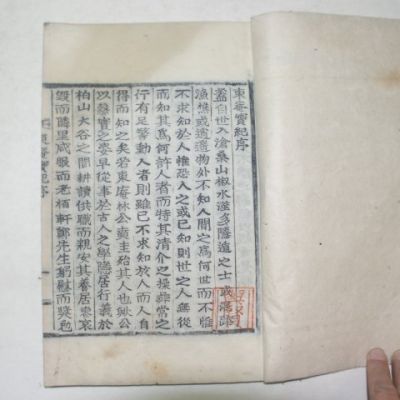 東菴實紀序
盖自世入滄桑山椒水滋多隱遁之士或混跡
漁樵或遺物外不知人間之爲何世而不惟
不求知於人惟恐人之或已知則世之人無從
而知其爲何許人者而特其清介之操非常之
行有足警動人者則雖已不求知於人而人自
得而知之矣若東庵林公實圭殆其人也歟公
以好賢之孝早從事於古人之學隱居行義於
柏山大谷之間耕讀供職而親安其養居喪哀
毁而隣里咸服而老栢軒鄭先生躬慰而奬